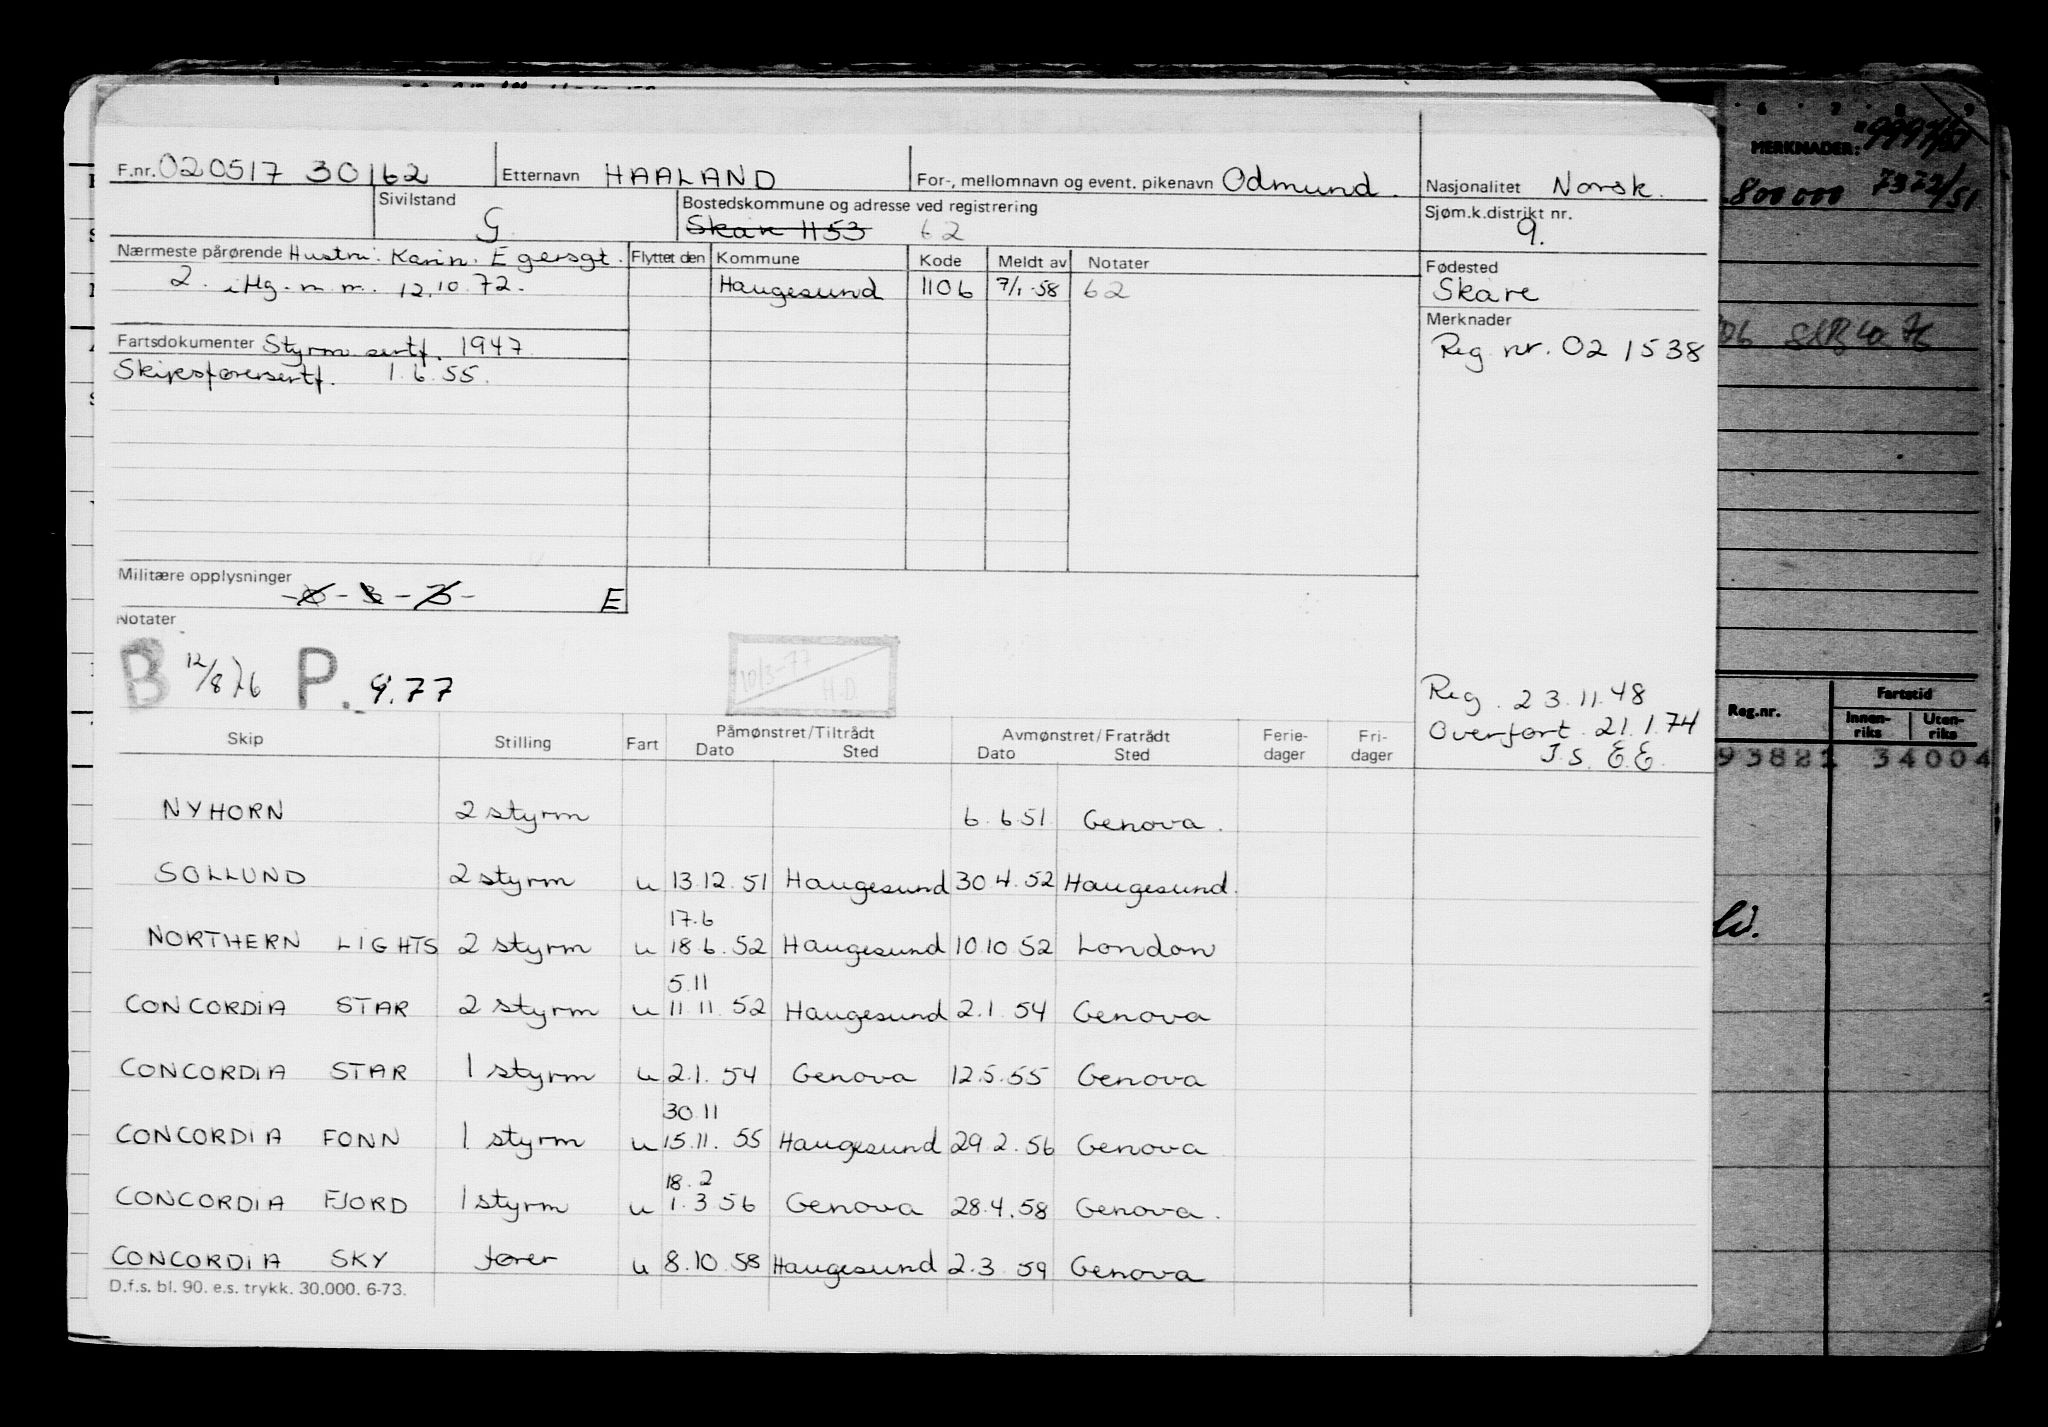 F.nr. 020517 30162 Etternavn HAALAND For-, mellomnavn og event. pikenavn Odmund. Nasjonalitet Norsk.
Sivilstand G Bostedskommune og adresse ved registrering Sjøm.k.distrikt nr. 9.
Skåre 1153 62
Nærmeste pårørende Hustru: Karin. Egersgt. Flyttet den Kommune Kode Meldt av Notater Fødested
2. iHg. m.m. 12.10.72. Haugesund 1106 7/1-58 62 Skåre
Merknader
Fartsdokumenter Styrm. sertf. 1947 Reg. nr. 02 1538
Skipsførersertf. 1.6.55.
Militære opplysninger
E
Notater
B 12/8 76 P. 9.77
10/3-77
H.D.
Reg. 23.11.48
Overført. 21.1.74
I.S. E.E.
Skip Stilling Fart Påmønstret/Tiltrådt Dato Sted Avmønstret/Fratrådt Dato Sted Ferie-dager Fri-dager
NYHORN 2 styrm 6.6.51 Genova.
SOLLUND 2 styrm u 13.12.51 Haugesund 30.4.52 Haugesund.
17.6
NORTHERN LIGHTS 2 styrm u 18.6.52 Haugesund 10.10.52 London
5.11
CONCORDIA STAR 2 styrm u 11.11.52 Haugesund 2.1.54 Genova
CONCORDIA STAR 1 styrm u 2.1.54 Genova 12.5.55 Genova
30.11
CONCORDIA FONN 1 styrm u 15.11.55 Haugesund 29.2.56 Genova
18.2
CONCORDIA FJORD 1 styrm u 1.3.56 Genova 28.4.58 Genova.
CONCORDIA SKY fører u 8.10.58 Haugesund 2.3.59 Genova
D.f.s. bl. 90. e.s. trykk. 30.000. 6-73.
6 7 8 9
MERKNADER:
800 000 7372/51
Reg.nr. Fartstid
Innen-riks Uten-riks
34004